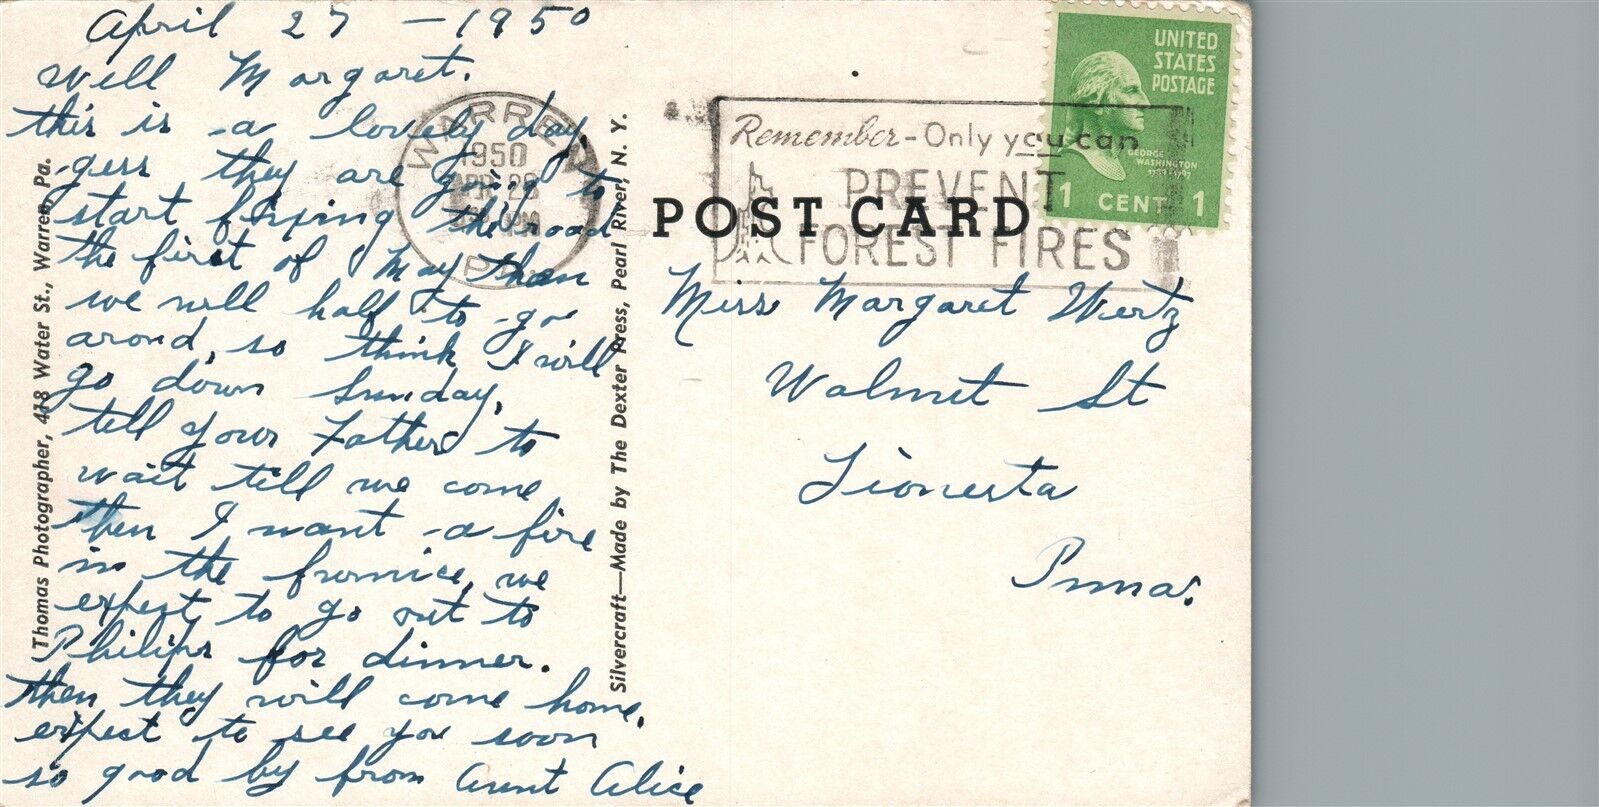 April 27 - 1950
Well Margaret.
this is a lovely day.
gess they are going to
start fixing the road
the first of May then
we will half to go
arond, so think I will
go down Sunday,
tell your Father to
wait till we come
then I want a fire
in the furnice, we
expect to go out to
Philips for dinner.
then they will come home.
expect to see you soon
so good by from Aunt Alice
Thomas Photographer, 418 Water St., Warren, Pa.
WARREN
1950
APR 28
PM
PA
Silvercraft—Made by The Dexter Press, Pearl River, N. Y.
Remember - Only you can
PREVENT
FOREST FIRES
POST CARD
UNITED
STATES
POSTAGE
GEORGE
WASHINGTON
1789-1797
1 CENT 1
Miss Margaret Wertz
Walnut St
Tionesta
Penna.